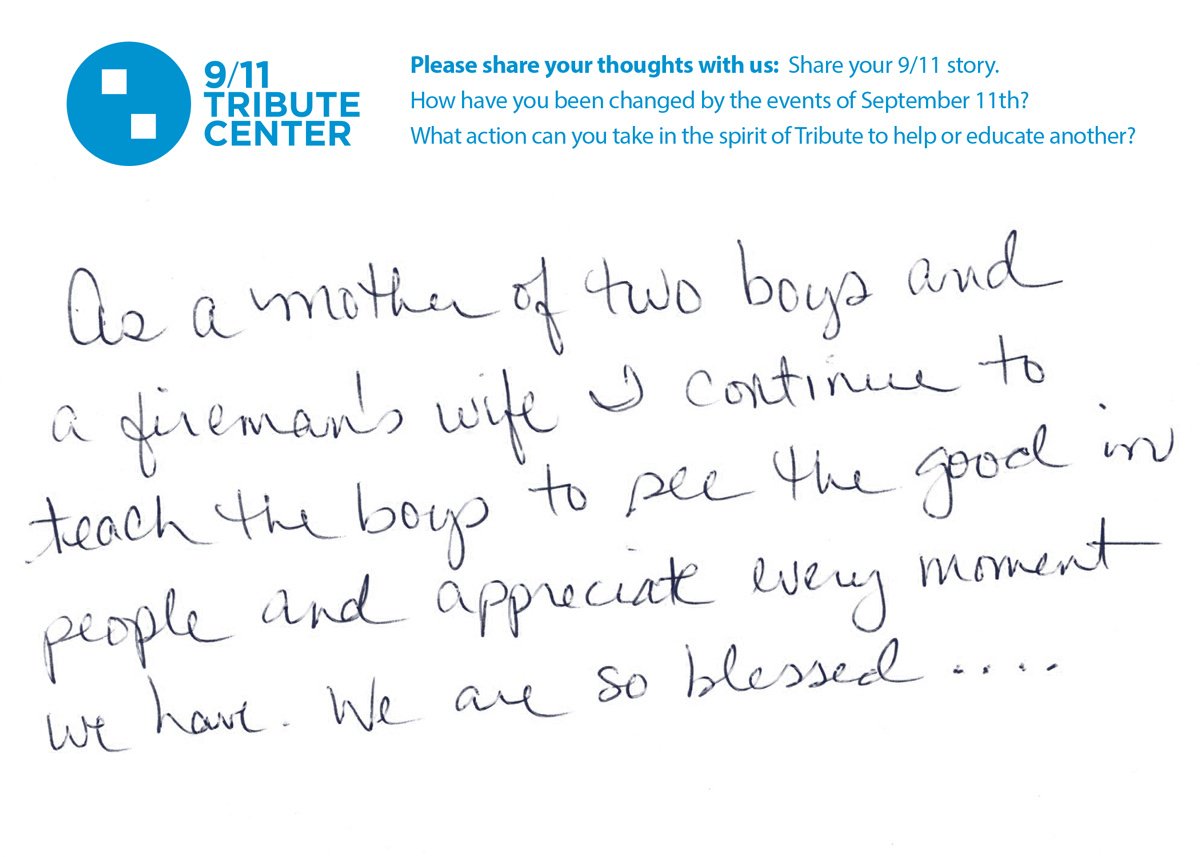 9/11
TRIBUTE
CENTER
Please share your thoughts with us: Share your 9/11 story.
How have you been changed by the events of September 11th?
What action can you take in the spirit of Tribute to help or educate another?
As a mother of two boys and
a fireman's wife I continue to
teach the boys to see the good in
people and appreciate every moment
we have. We are so blessed .....